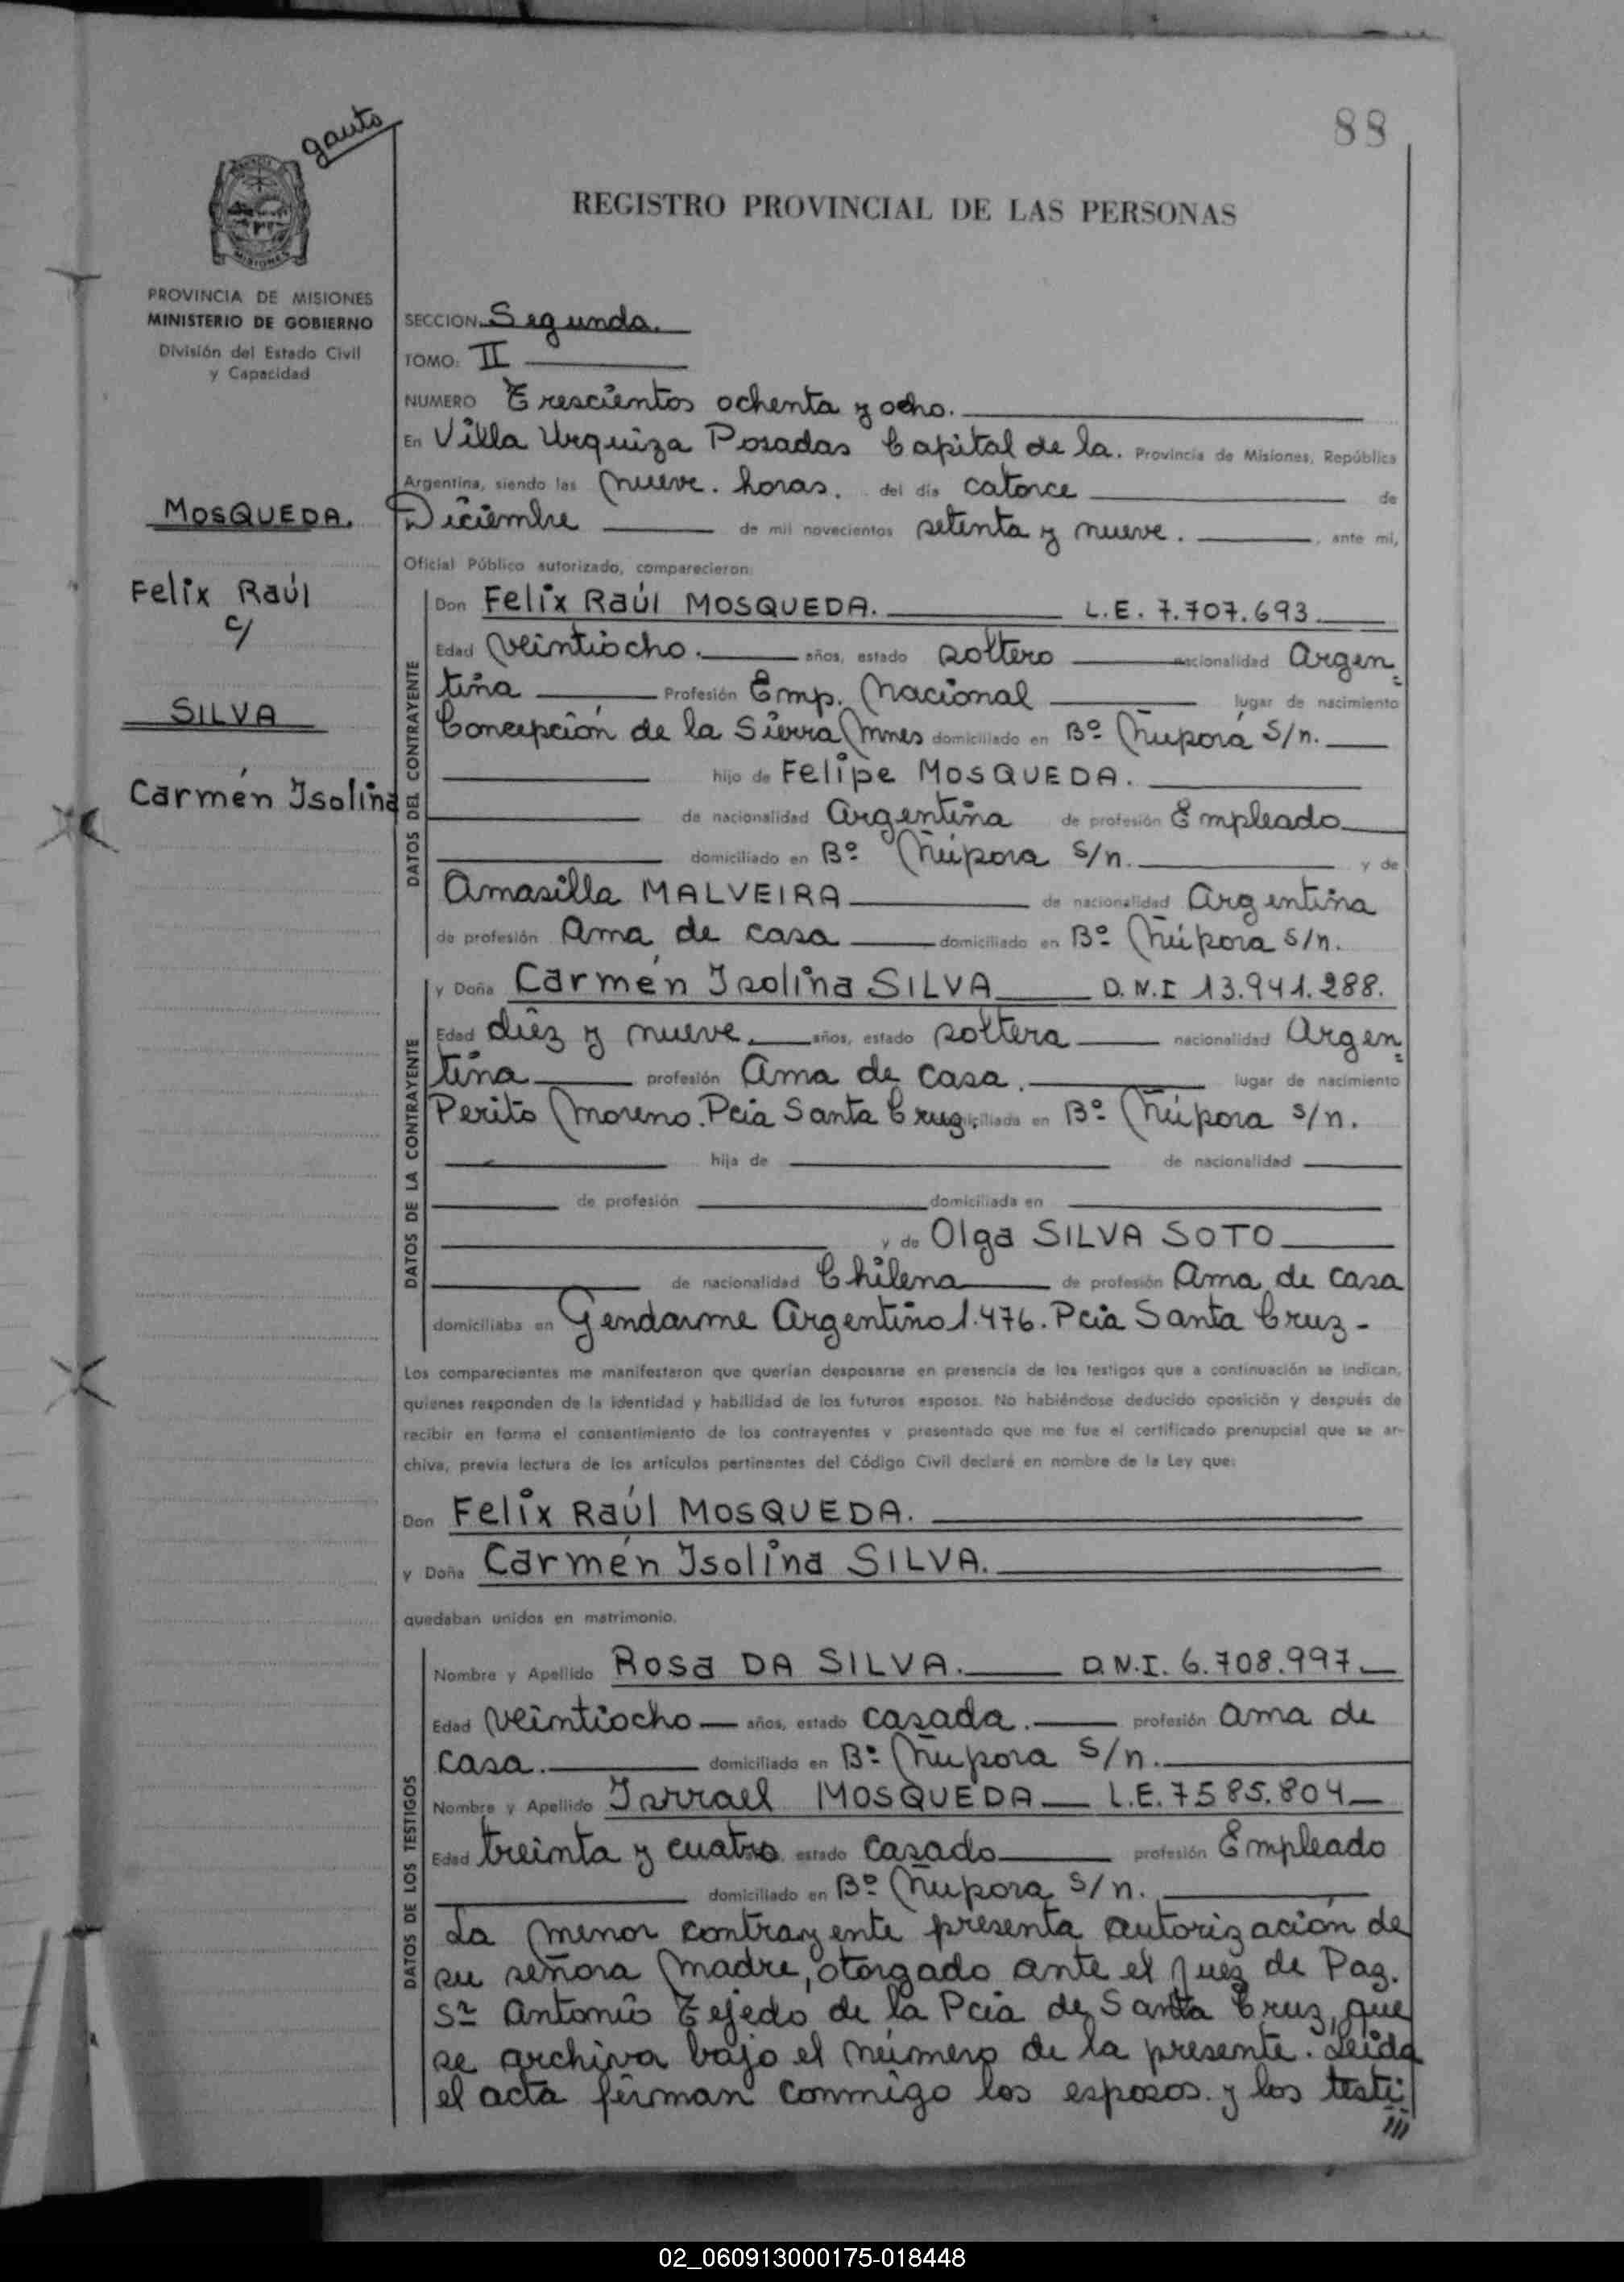 gauto
88
REGISTRO PROVINCIAL DE LAS PERSONAS
MISIONES
PROVINCIA DE MISIONES
MINISTERIO DE GOBIERNO
División del Estado Civil
y Capacidad
MOSQUEDA.
Felix Raúl
c/
SILVA
Carmén Isolina
SECCION. Segunda.
TOMO: II
NUMERO Trescientos ochenta y ocho.
En Villa Urquiza Posadas Capital de la. Provincia de Misiones, República
Argentina, siendo las nueve. horas. del día catorce de
Diciembre de mil novecientos setenta y nueve. , ante mi,
Oficial Público autorizado, comparecieron:
DATOS DEL CONTRAYENTE
Don Felix Raúl MOSQUEDA. L.E. 7.707.693.
Edad veintiocho. años, estado soltero nacionalidad Argen=
tina Profesión Emp. Nacional lugar de nacimiento
Concepción de la Sierra Mnes domiciliado en Bº Ñupora S/n.
hijo de Felipe MOSQUEDA.
de nacionalidad Argentina de profesión Empleado
domiciliado en Bº Ñupora S/n. y de
Amasilla MALVEIRA de nacionalidad Argentina
de profesión Ama de casa domiciliado en Bº Ñúpora S/n.
DATOS DE LA CONTRAYENTE
y Doña Carmén Isolina SILVA D.N.I 13.941.288.
Edad diez y nueve. años, estado soltera nacionalidad Argen=
tina profesión Ama de casa. lugar de nacimiento
Perito Moreno. Pcia Santa Cruz. domiciliada en Bº Ñúpora s/n.
hija de de nacionalidad
de profesión domiciliada en
y de Olga SILVA SOTO
de nacionalidad Chilena de profesión Ama de casa
domiciliaba en Gendarme Argentino 1.476. Pcia Santa Cruz -
Los comparecientes me manifestaron que querían desposarse en presencia de los testigos que a continuación se indican,
quienes responden de la identidad y habilidad de los futuros esposos. No habiéndose deducido oposición y después de
recibir en forma el consentimiento de los contrayentes y presentado que me fue el certificado prenupcial que se ar-
chiva, previa lectura de los artículos pertinentes del Código Civil declaré en nombre de la Ley que:
Don Felix Raúl MOSQUEDA.
y Doña Carmén Isolina SILVA.
quedaban unidos en matrimonio.
DATOS DE LOS TESTIGOS
Nombre y Apellido Rosa DA SILVA. D.N.I. 6.708.997
Edad veintiocho años, estado casada. profesión ama de
casa. domiciliado en Bº Ñupora S/n.
Nombre y Apellido Isrrael MOSQUEDA L.E. 7585.804
Edad treinta y cuatro estado casado profesión Empleado
domiciliado en Bº Ñupora S/n.
La menor contrayente presenta autorización de
su señora madre, otorgado ante el Juez de Paz.
Sr Antonio Tejedo de la Pcia de Santa Cruz, que
se archiva bajo el número de la presente. Leida
el acta firman conmigo los esposos y los testi=
///
02_060913000175-018448